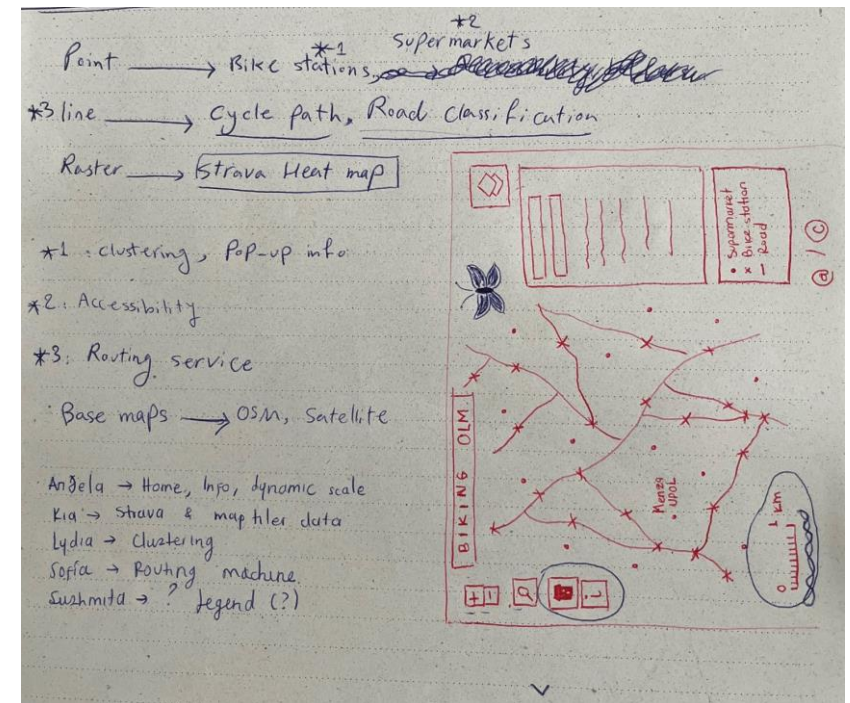 *2
Point → Bike stations, *1 Supermarkets
*3 line → Cycle Path, Road Classification
Raster → Strava Heat map
*1 : clustering, Pop-up info
*2 : Accessibility
*3 : Routing service
Base maps → OSM, Satellite
Angela → Home, Info, dynamic scale
Kia → Strava & map tiler data
Lydia → Clustering
Sofía → Routing machine
Sushmita → ? Legend (?)
BIKING OLM.
• Supermarket
x Bike station
– Road
@ / ©
Menza
UPOL
0 1 km
+
–
i